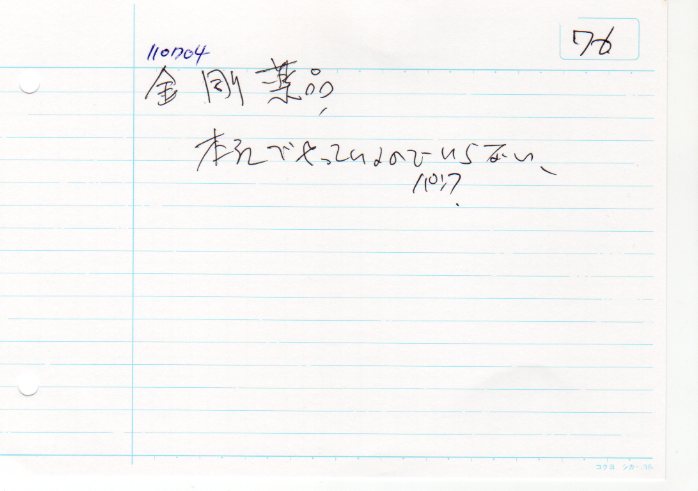 76
110704
金剛薬品
本社でやっているのでいらない、
パンフ
コクヨ シカ-